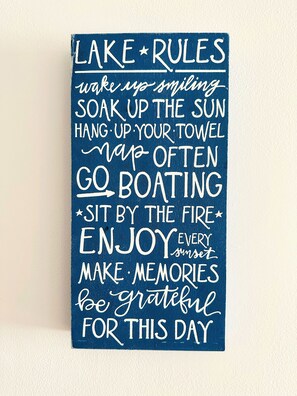 LAKE ★ RULES
wake up smiling
SOAK UP THE SUN
HANG·UP·YOUR·TOWEL
nap OFTEN
GO → BOATING
★ SIT BY THE FIRE ★
ENJOY EVERY sunset
MAKE·MEMORIES
be grateful
FOR THIS DAY